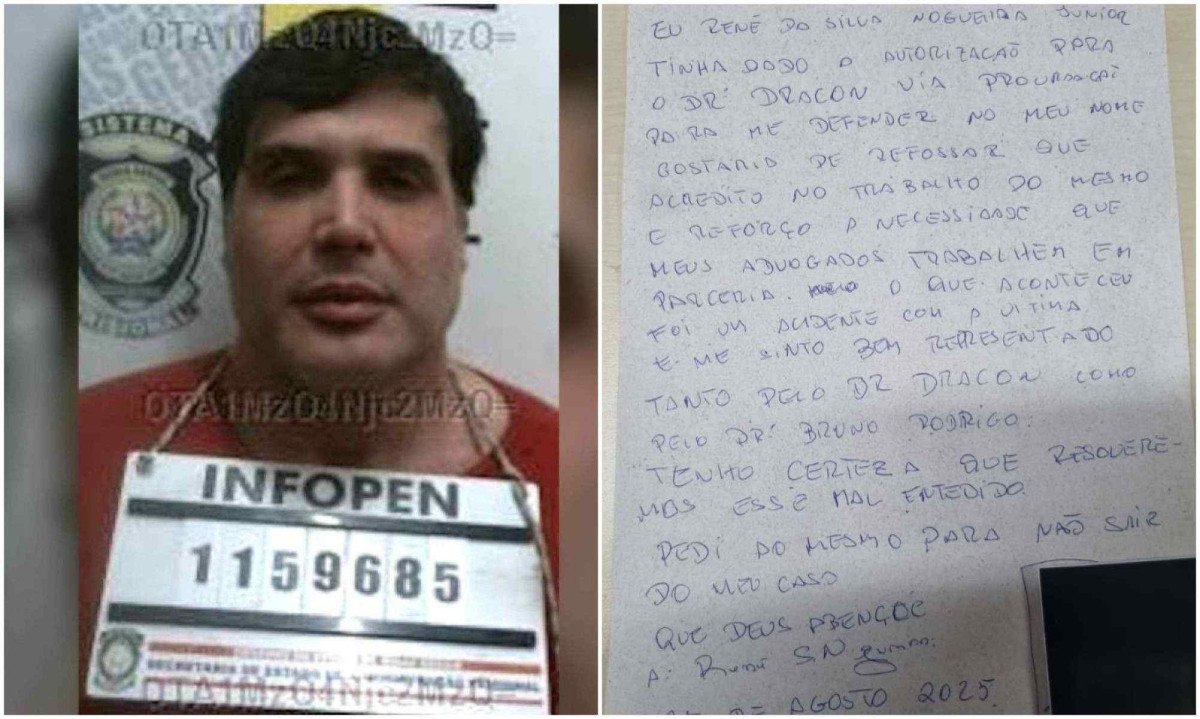 OTA1MzQ4Njc2MzQ=
SISTEMA
INFOPEN
1159685
OTA1MzQ4Njc2MzQ=
SECRETARIA DE ESTADO DE
OTA1MzQ4Njc2MzQ=
EU RENÊ DA SILVA NOGUEIRA JUNIOR
TINHA DADO A AUTORIZAÇÃO PARA
O DR: DRACON VIA PROCURAÇAÕ
PARA ME DEFENDER NO MEU NOME
GOSTARIA DE REFOSSAR QUE
ACREDITO NO TRABALHO DO MESMO
E REFORÇO A NECESSIDADE QUE
MEUS ADVOGADOS TRABALHEM EM
PARCERIA. O QUE ACONTECEU
FOI UM ACIDENTE COM A VITIMA
E ME SINTO BEM REPRESENTADO
TANTO PELO DR DRACON COMO
PELO DR: BRUNO RODRIGO.
TENHO CERTEZA QUE RESOLVERE-
MOS ESSE MAL ENTEDIDO
PEDI AO MESMO PARA NÃO SAIR
DO MEU CASO
QUE DEUS ABENÇOE
A: Renê S N
DE AGOSTO 2025